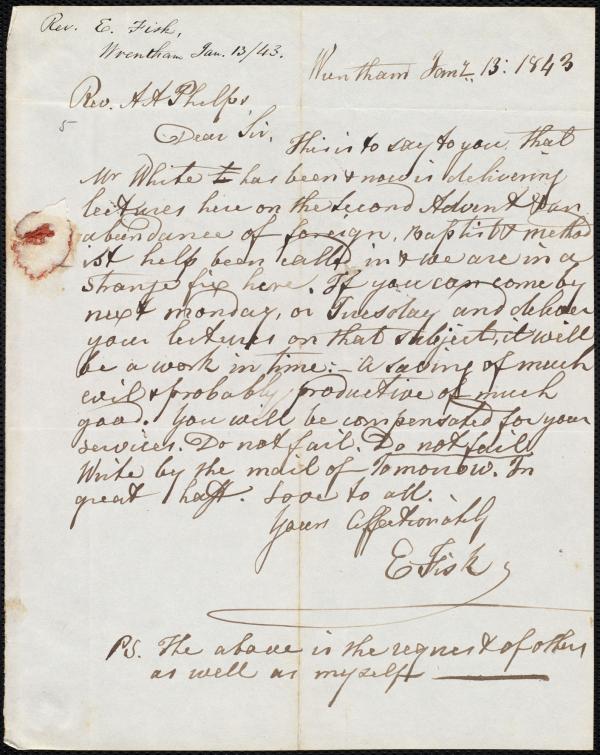 Rev. E. Fisk,
Wrentham Jan. 13/43.
Wrentham Jany. 13: 1843
Rev. A A Phelps
5
Dear Sir, This is to say to you that
Mr White has been & now is delivering
lectures here on the Second Advent & an
abundance of foreign, Baptist & method
ist help been called in & we are in a
strange fix here. If you can come by
next monday, or Tuesday and deliver
your lectures on that subject, it will
be a work in time: - a saving of much
evil & probably productive of much
good. You will be compensated for your
services. Do not fail. Do not fail.
Write by the mail of Tomorrow. In
great hast. Love to all.
Yours affectionately
E Fisk
PS. The above is the request of others
as well as myself